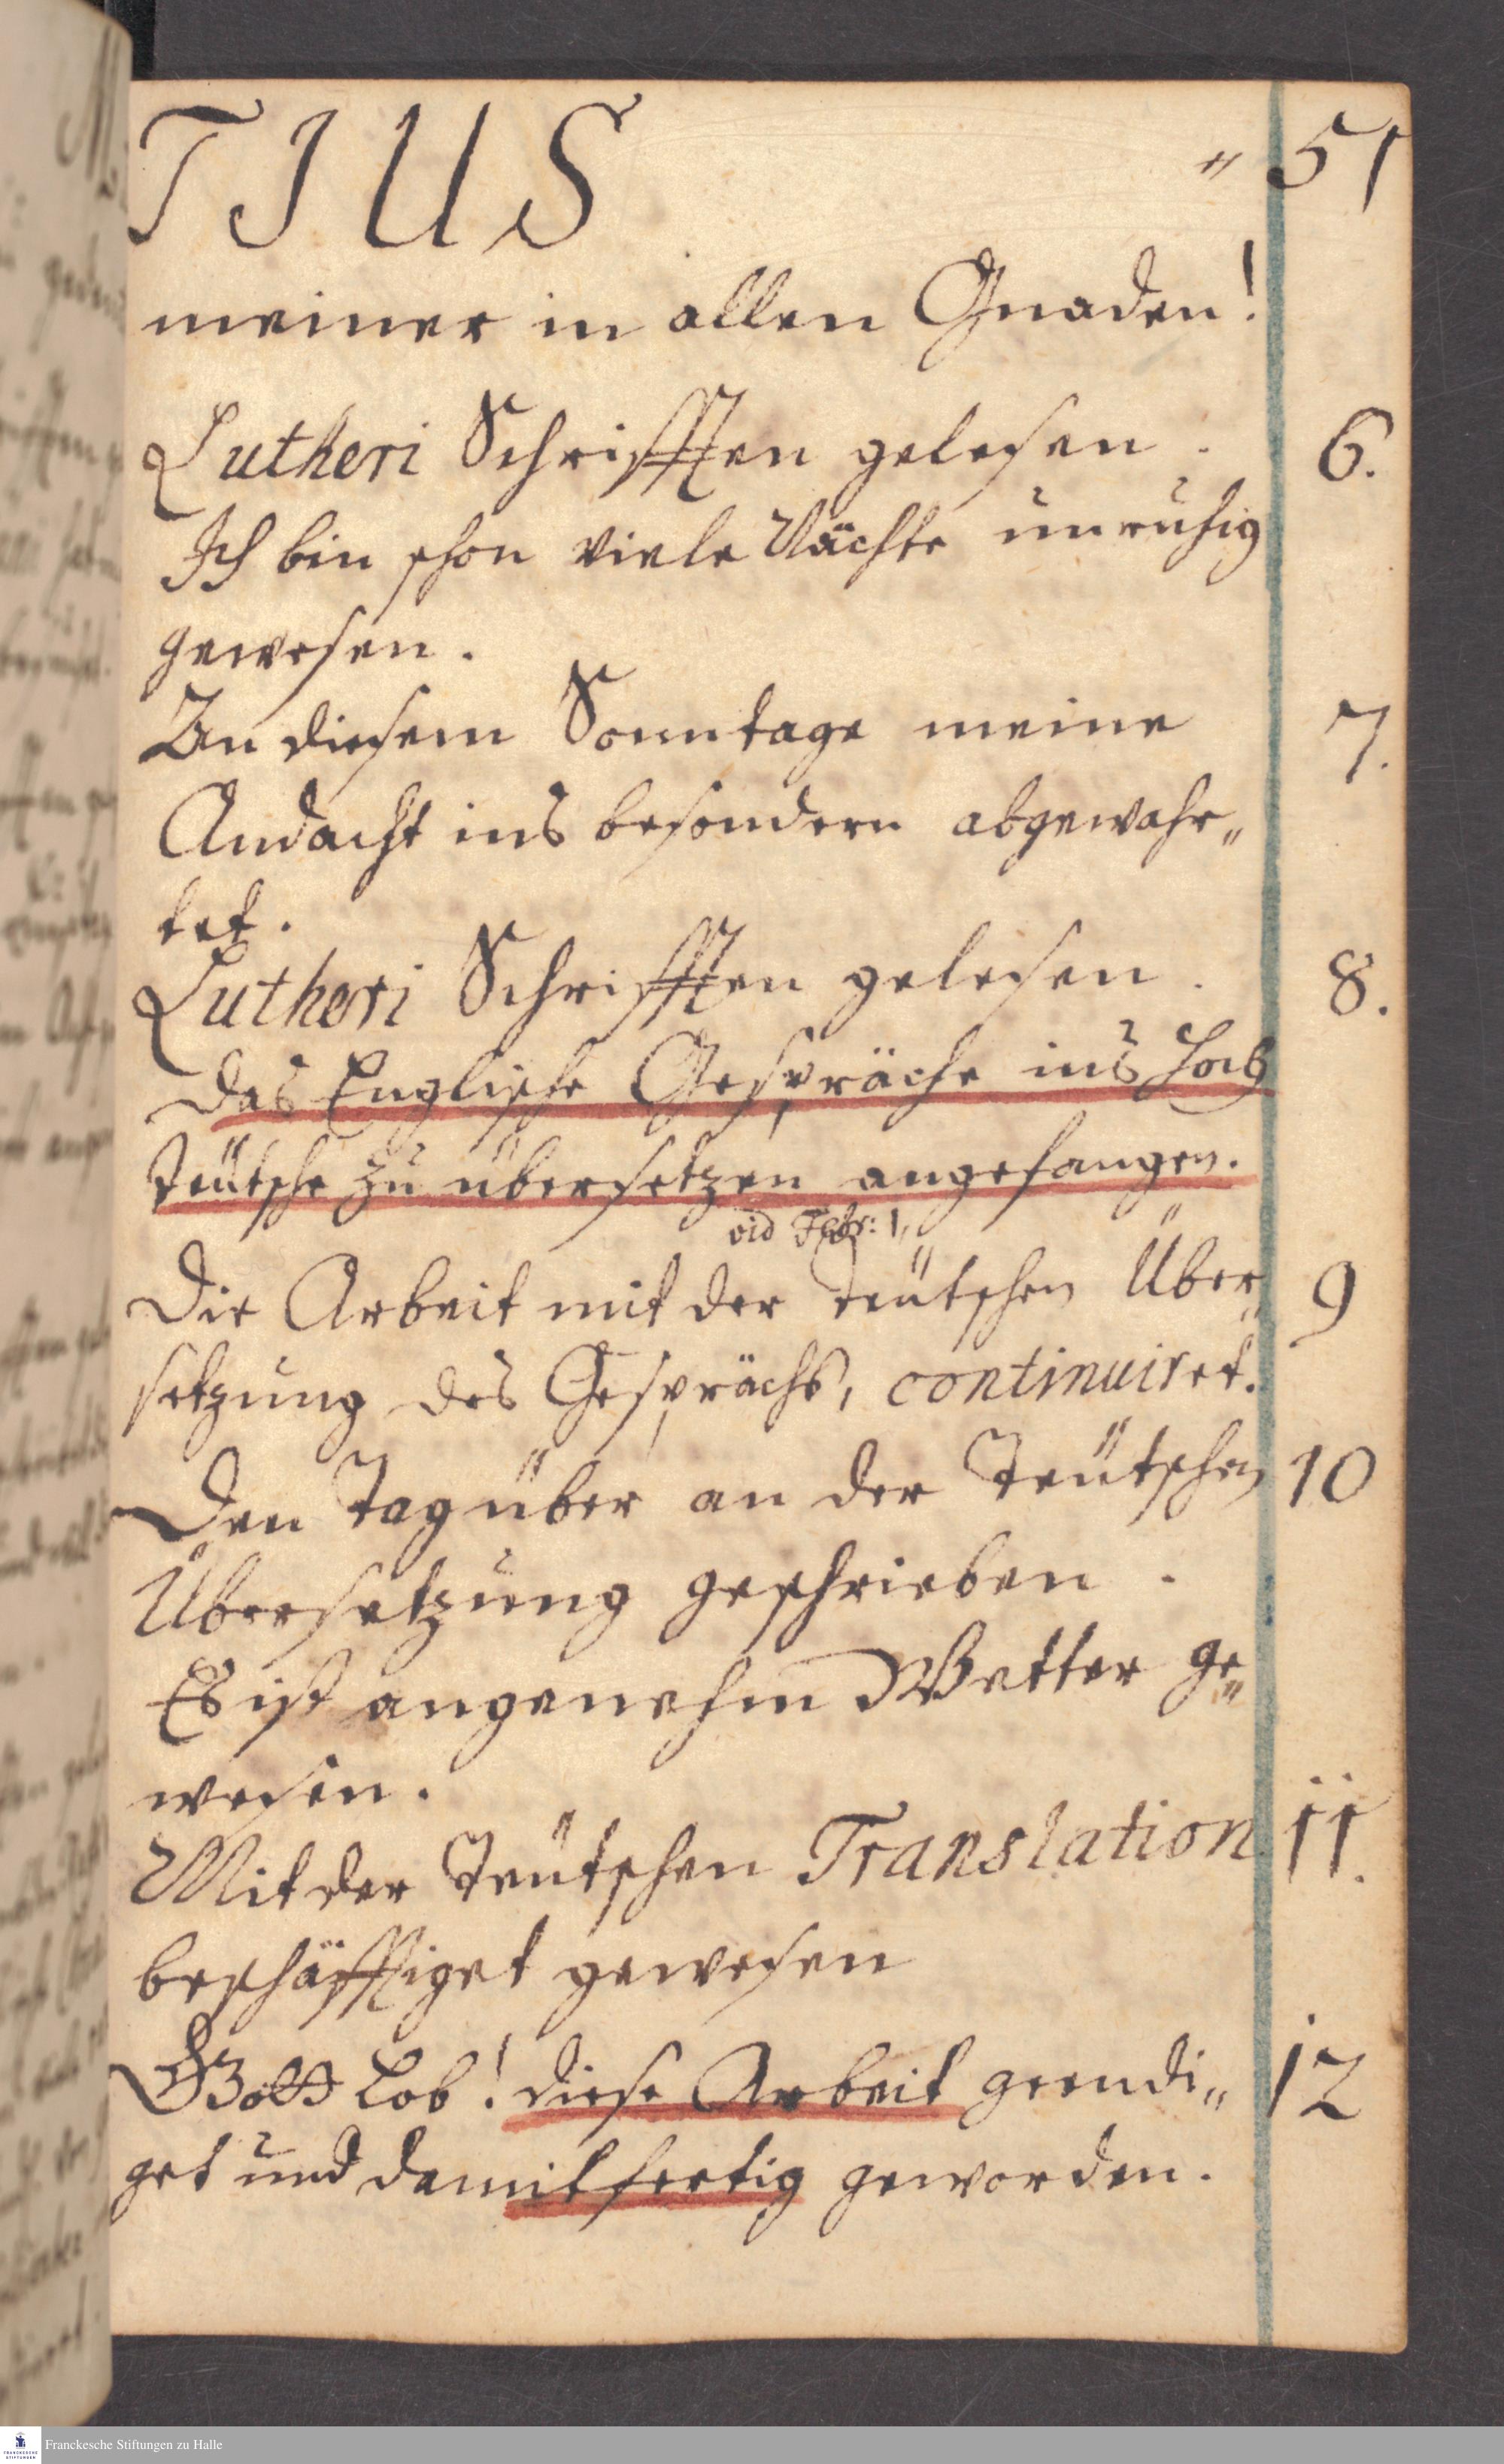 TIUS „ 51
meiner in allen Gnaden!
Lutheri Schrifften gelesen. 6.
Ich bin schon viele Nächte unruhig
gewesen.
An diesem Sonntage meine 7.
Andacht ins besondern abgewahr„
tet.
Lutheri Schrifften gelesen. 8.
Das Englische Gespräche ins
Teütsche zu übersetzen angefangen.
vid Febr: 1,
Die Arbeit mit der teütschen Über„ 9
setzung des Gesprächs, continuiret.
Den Tag über an der Teütschen 10
Übersetzung geschrieben.
Es ist angenehm Wetter ge„
wesen.
Mit der Teütschen Translation 11.
beschäfftiget gewesen
Gott Lob! diese Arbeit geendi„ 12
get und damit fertig geworden.
Franckesche Stiftungen zu Halle
FRANCKESCHE STIFTUNGEN